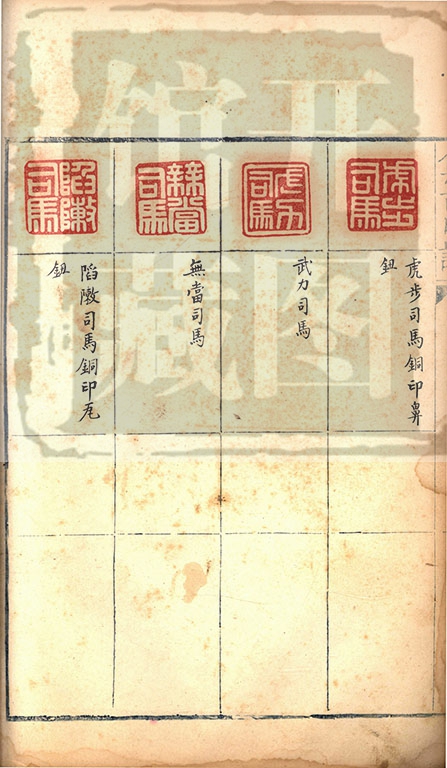 虎步
司馬
虎步司馬銅印鼻
鈕
武力
司馬
武力司馬
無當
司馬
無當司馬
陷敶
司馬
陷敶司馬銅印瓦
鈕
开图
馆藏